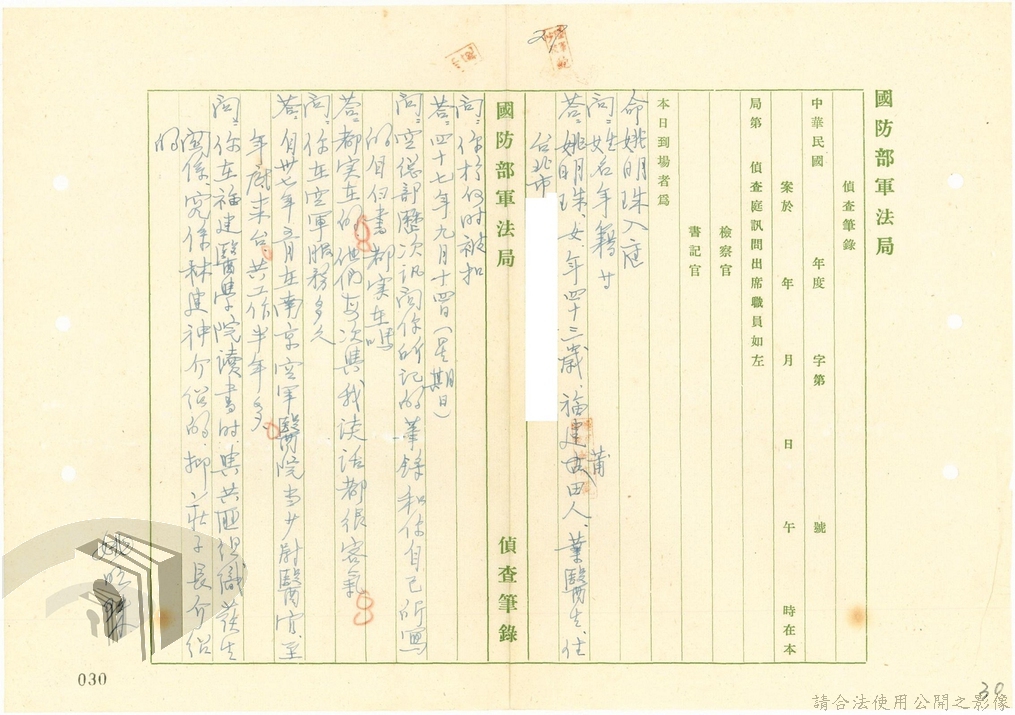 國防部軍法局
偵查筆錄
中華民國 年度 字第 號
案於 年 月 日 午 時在本
局第 偵查庭訊問出席職員如左
檢察官
書記官
本日到場者為
命姚明珠入庭
問:姓名年籍等
答:姚明珠、女、年四十三歲、福建莆田人、業醫生、住
台北市
國防部軍法局 偵查筆錄
問:你於何時被扣
答:四十七年九月十四日(星期日)
問:空總部歷次訊問你所記的筆錄和你自己所寫
的自白書都實在嗎
答:都实在的、他們每次與我談話都很客氣
問:你在空軍服務多久
答:自卅七年五月在南京空軍醫院當少尉醫官、至
年底來台、共工作半年多
問:你在福建醫學院讀書时、與共匪組織發生
關係、究係林建神介紹的、抑莊子長介紹
的
姚明珠
030
30
請合法使用公開之影像